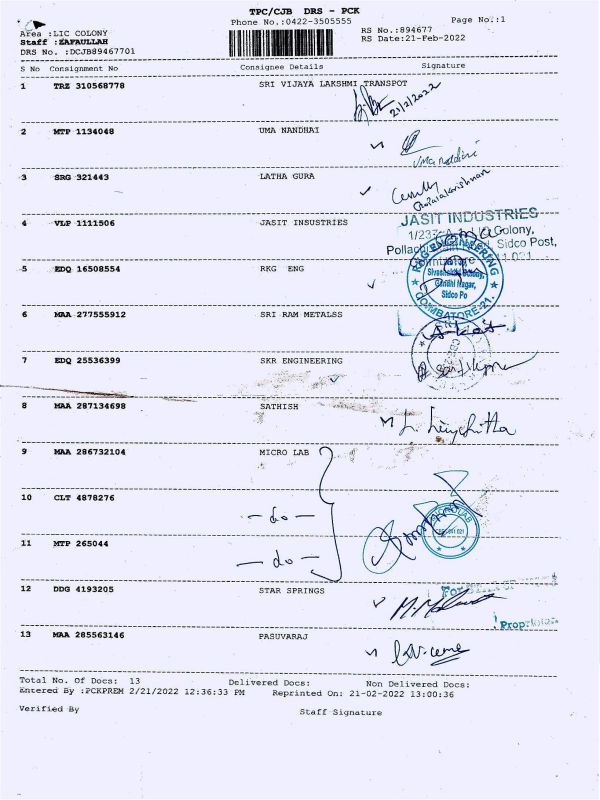 TPC/CJB DRS - PCK
Phone No.:0422-3505555
Page No.:1
Area :LIC COLONY
RS No.:894677
Staff :ZAFAULLAH
RS Date:21-Feb-2022
DRS No. :DCJB89467701
S No Consignment No Consignee Details Signature
1 TRZ 310568778 SRI VIJAYA LAKSHMI TRANSPOT
21/2/2022
2 MTP 1134048 UMA NANDHAI
3 SRG 321443 LATHA GURA
4 VLP 1111506 JASIT INSUSTRIES
JASIT INDUSTRIES
Colony,
Sidco Post,
5 EDQ 16508554 RKG ENG
RKG ENGINEERING
Gandhi Nagar,
Sidco Po
COIMBATORE-21.
6 MAA 277555912 SRI RAM METALSS
7 EDQ 25536399 SKR ENGINEERING
8 MAA 287134698 SATHISH
9 MAA 286732104 MICRO LAB
10 CLT 4878276
- do -
11 MTP 265044
- do -
12 DDG 4193205 STAR SPRINGS
For
13 MAA 285563146 PASUVARAJ
Total No. Of Docs: 13 Delivered Docs: Non Delivered Docs:
Entered By :PCKPREM 2/21/2022 12:36:33 PM Reprinted On: 21-02-2022 13:00:36
Verified By Staff Signature